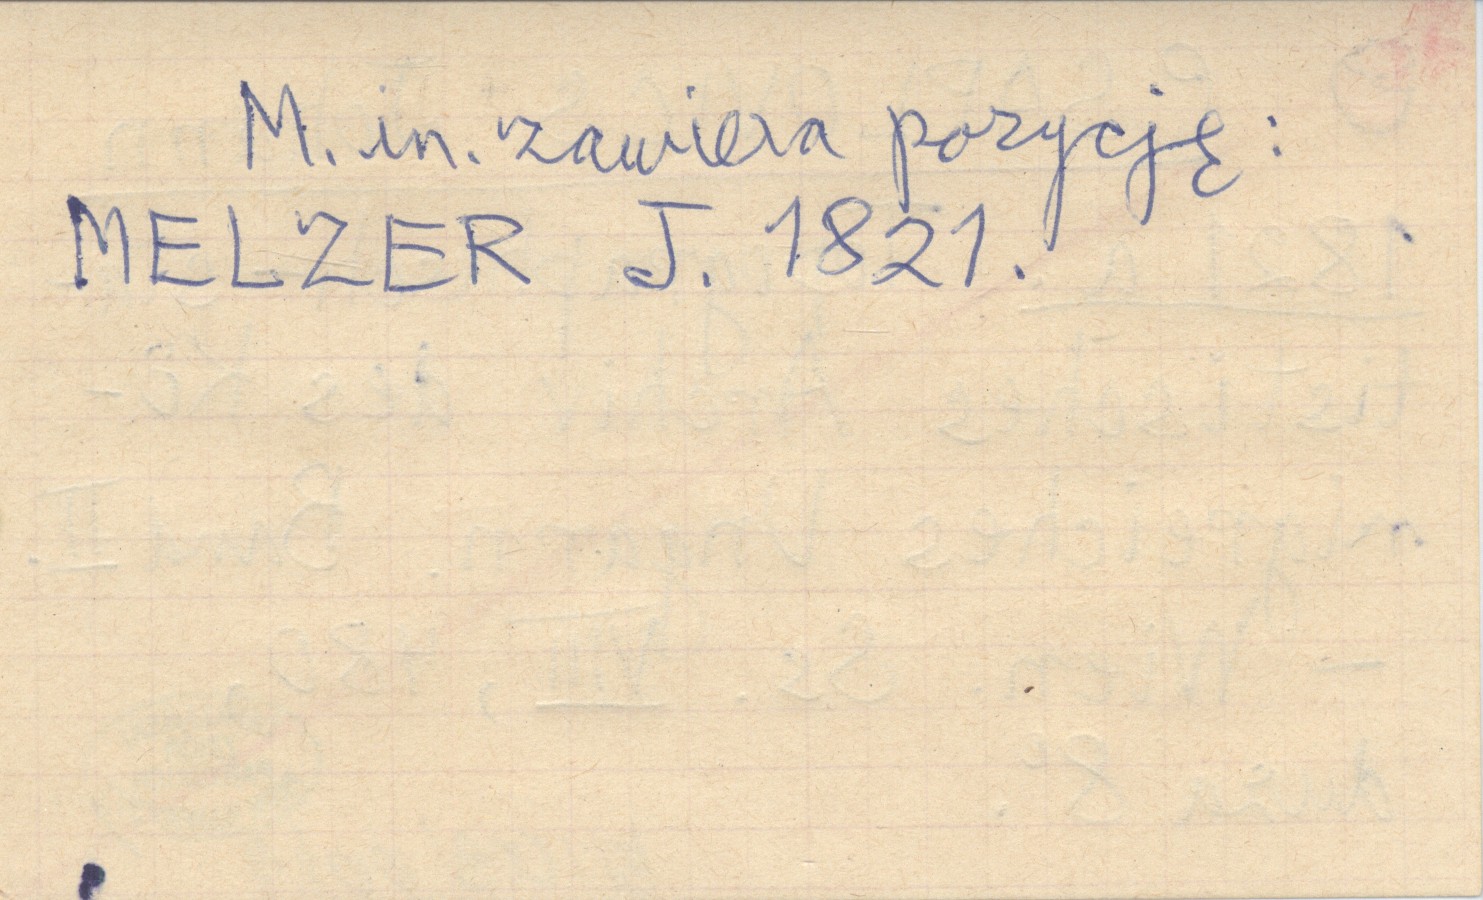 M. in. zawiera pozycję:
MELZER J. 1821.